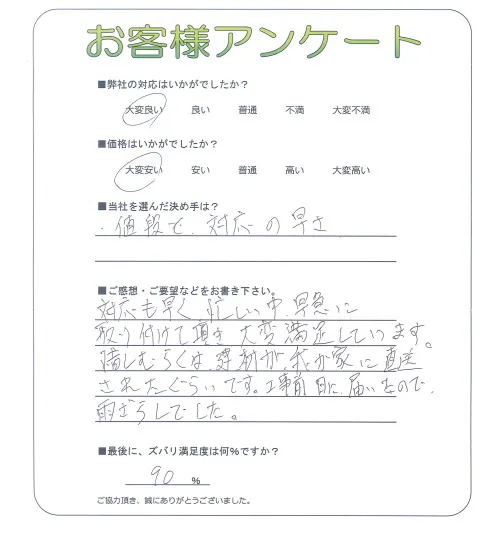 お客様アンケート
■弊社の対応はいかがでしたか？
大変良い 良い 普通 不満 大変不満
■価格はいかがでしたか？
大変安い 安い 普通 高い 大変高い
■当社を選んだ決め手は？
・値段と、対応の早さ
■ご感想・ご要望などをお書き下さい。
対応も早く、忙しい中、早急に
取り付けて頂き大変満足しています。
惜しむらくは、が、我が家に直送
されたぐらいです。工事前日に、届いたので、
雨ざらしでした。
■最後に、ズバリ満足度は何％ですか？
90 ％
ご協力頂き、誠にありがとうございました。